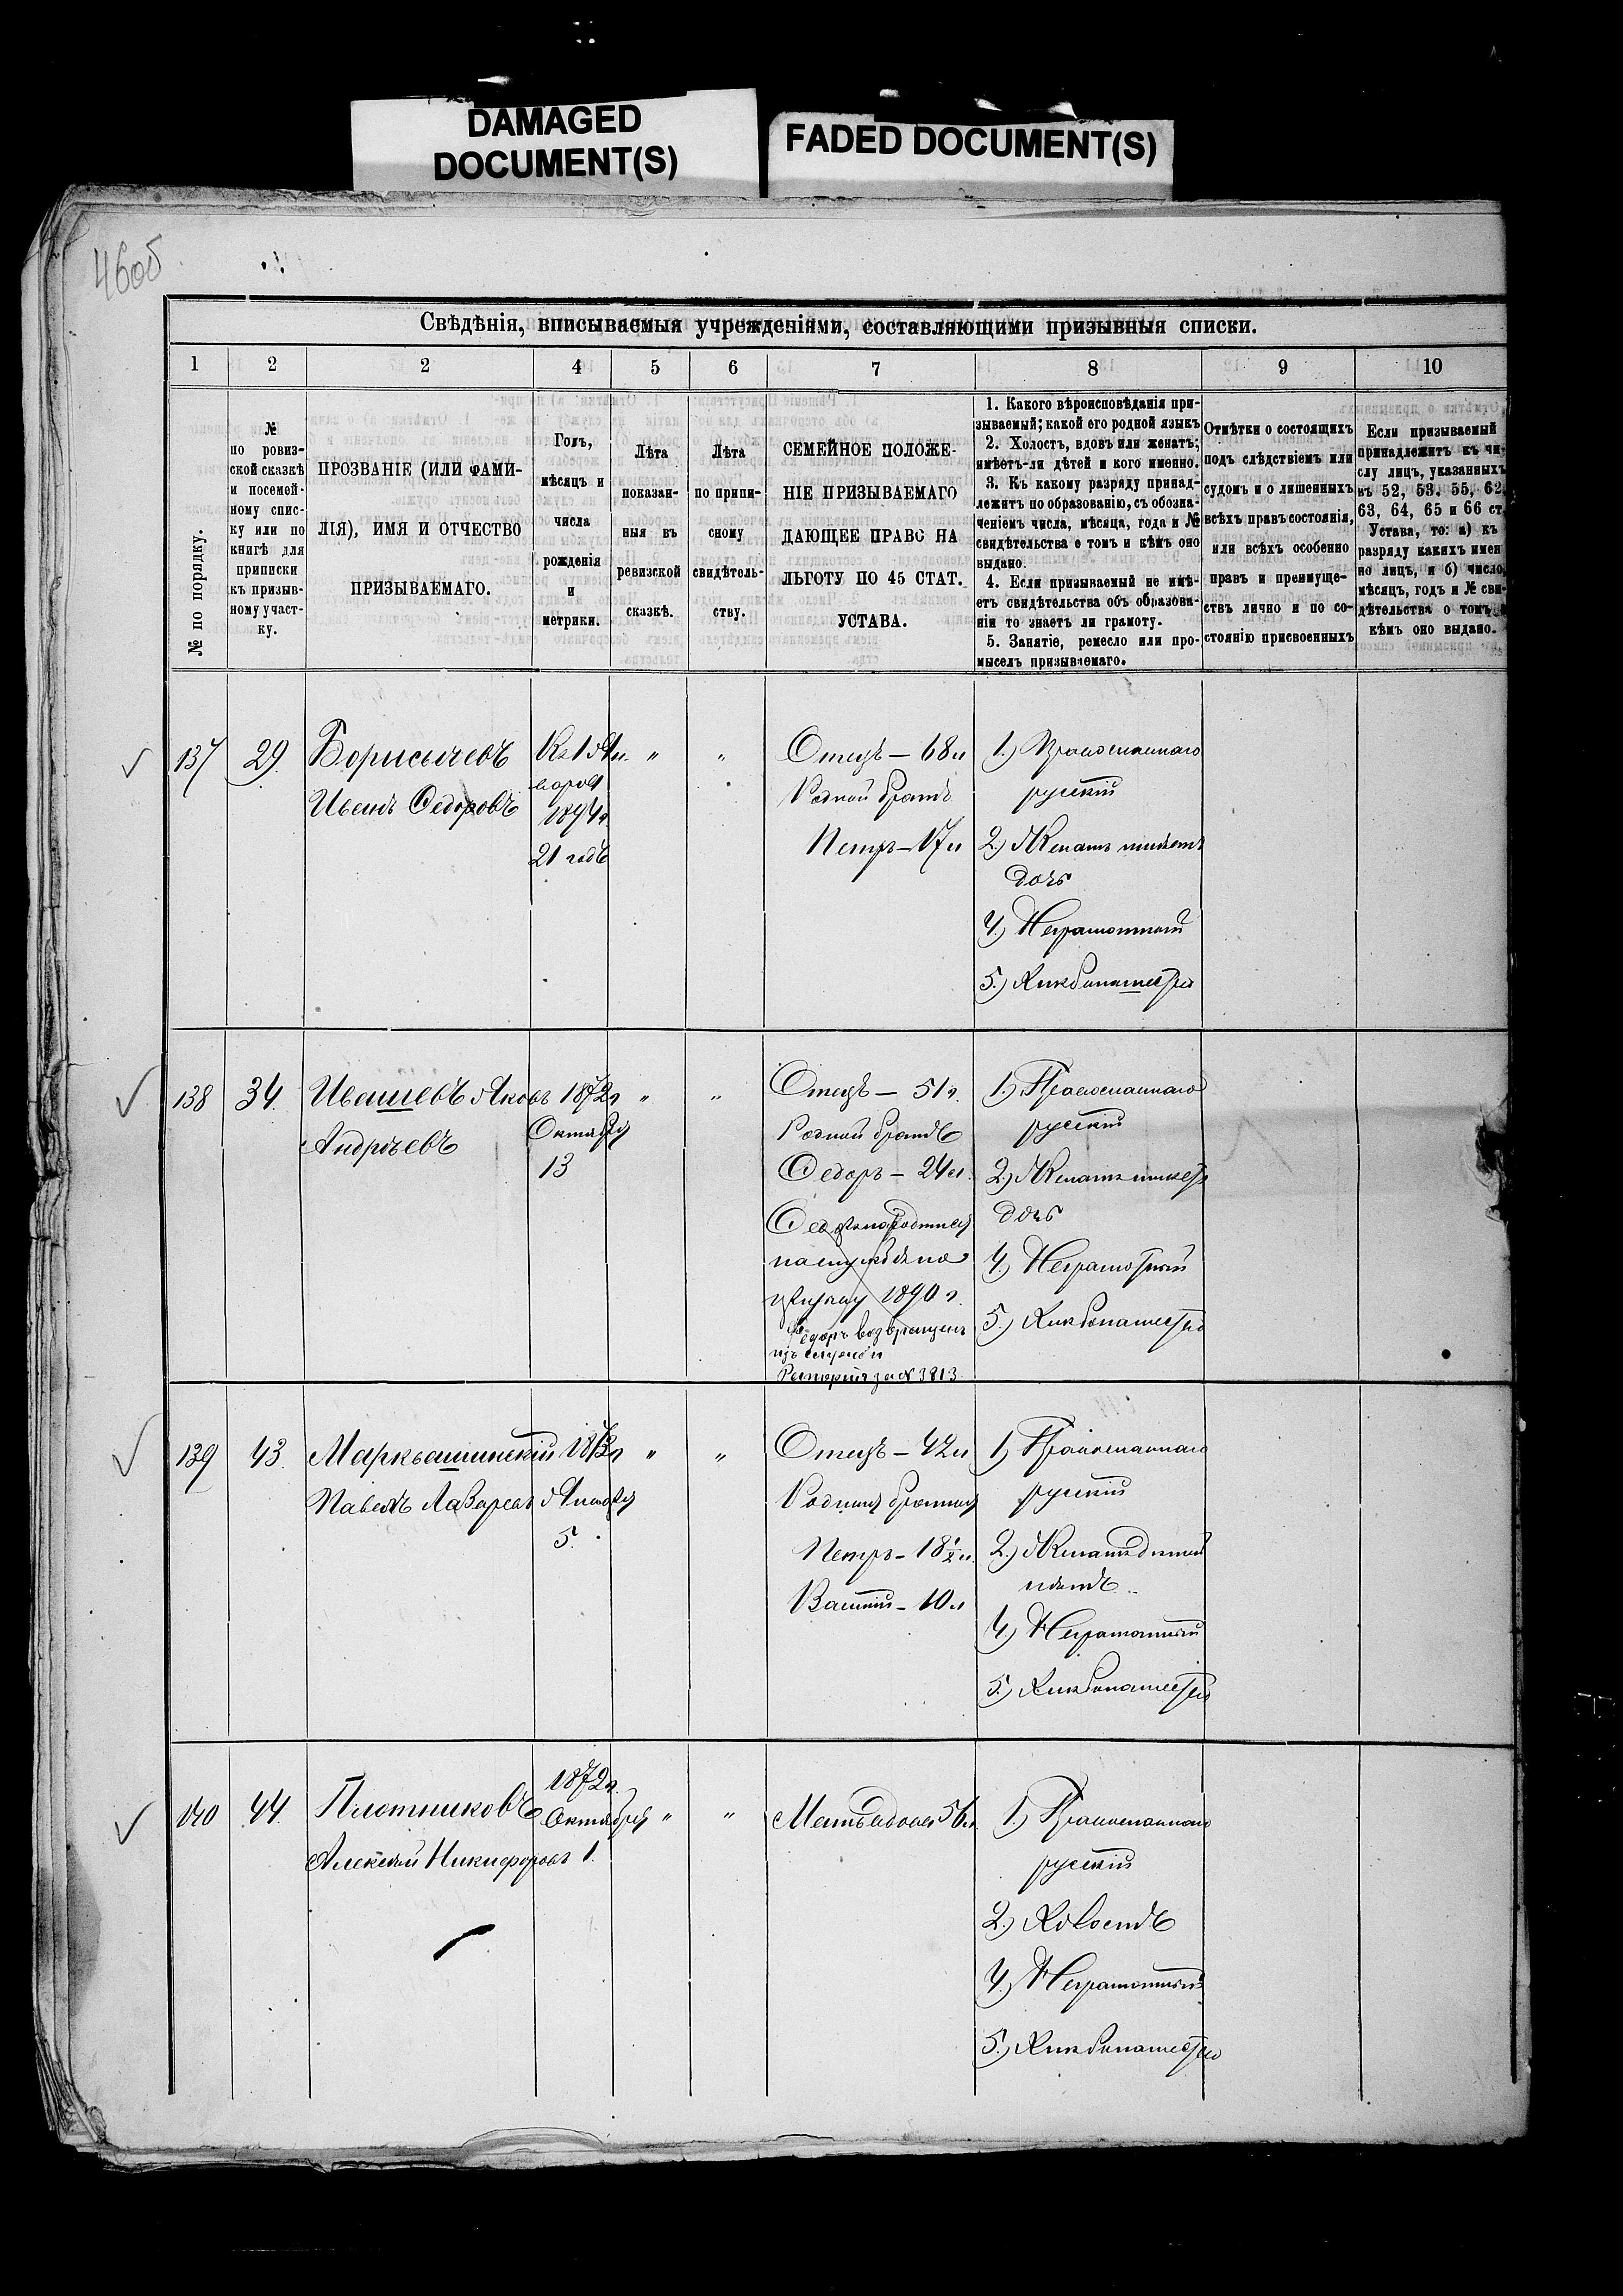 DAMAGED
DOCUMENT(S)
FADED DOCUMENT(S)
460б
Свѣдѣнія, вписываемыя учрежденіями, составляющими призывныя списки.
1
2
2
4
5
6
7
8
9
10
№ по порядку.
№
по ревиз-
ской сказкѣ
и посемей-
ному спис-
ку или по
книгѣ для
приписки
къ призыв-
ному участ-
ку.
ПРОЗВАНІЕ (ИЛИ ФАМИ-
ЛІЯ), ИМЯ И ОТЧЕСТВО
ПРИЗЫВАЕМАГО.
Годъ,
мѣсяцъ и
числа
рожденія
и
метрики.
Лѣта
показан-
ныя въ
ревизской
сказкѣ.
Лѣта
по припи-
сному
свидѣтель-
ству.
СЕМЕЙНОЕ ПОЛОЖЕ-
НІЕ ПРИЗЫВАЕМАГО
ДАЮЩЕЕ ПРАВО НА
ЛЬГОТУ ПО 45 СТАТ.
УСТАВА.
1. Какого вѣроисповѣданія при-
зываемый; какой его родной языкъ
2. Холостъ, вдовъ или женатъ;
имѣетъ-ли дѣтей и кого именно.
3. Къ какому разряду принад-
лежитъ по образованію, съ обозна-
ченіемъ числа, мѣсяца, года и №
свидѣтельства о томъ и кѣмъ оно
выдано.
4. Если призываемый не имѣ-
етъ свидѣтельства объ образова-
ніи то знаетъ ли грамоту.
5. Занятіе, ремесло или про-
мыселъ призываемаго.
Отмѣтки о состоящихъ
подъ слѣдствіемъ или
судомъ и о лишенныхъ
всѣхъ правъ состоянія,
или всѣхъ особенно
правъ и преимуще-
ствъ лично и по со-
стоянію присвоенныхъ
Если призываемый
принадлежитъ къ чи-
слу лицъ, указанныхъ
въ 52, 53, 55, 62,
63, 64, 65 и 66 ст.
Устава, то: а) къ
разряду какихъ имен
но лицъ, и б) число,
мѣсяцъ, годъ и № сви-
дѣтельства о томъ и
кѣмъ оно выдано.
137
29.
Борисычевъ
Иванъ Федоровъ
Къ 1 Ян
варя
1894 г.
21 годъ
"
"
Отецъ — 68 л
Родной братъ
Петръ — 17 л
1.) Православнаго
русскій
2.) Женатъ имѣетъ
дочь
4.) Неграмотный
5.) Хлѣбопашество
138
34.
Ивашевъ Яковъ
Андрѣевъ
1872 г
Октября
13
"
"
Отецъ — 51 г.
Родной братъ
Федоръ — 24 л.
1890 г.
Федоръ возвращенъ
изъ службы
№ 3813
1.) Православнаго
русскій
2.) Женатъ имѣетъ
дочь
4.) Неграмотный
5.) Хлѣбопашество
139
43.
Павелъ Лазаревъ
5.
"
"
Отецъ — 42 л
Родныя братья
Петръ — 18 ½ л.
Василій — 10 л
1.) Православнаго
русскій
2.) Женатъ дѣтей
нѣтъ
4.) Неграмотный
5.) Хлѣбопашество
140
44.
Плотниковъ
Алексѣй Никифоровъ
1872 г.
Октября
1.
"
"
Мать вдова 56 л.
1.) Православнаго
русскій
2.) Холостъ
4.) Неграмотный
5.) Хлѣбопашество